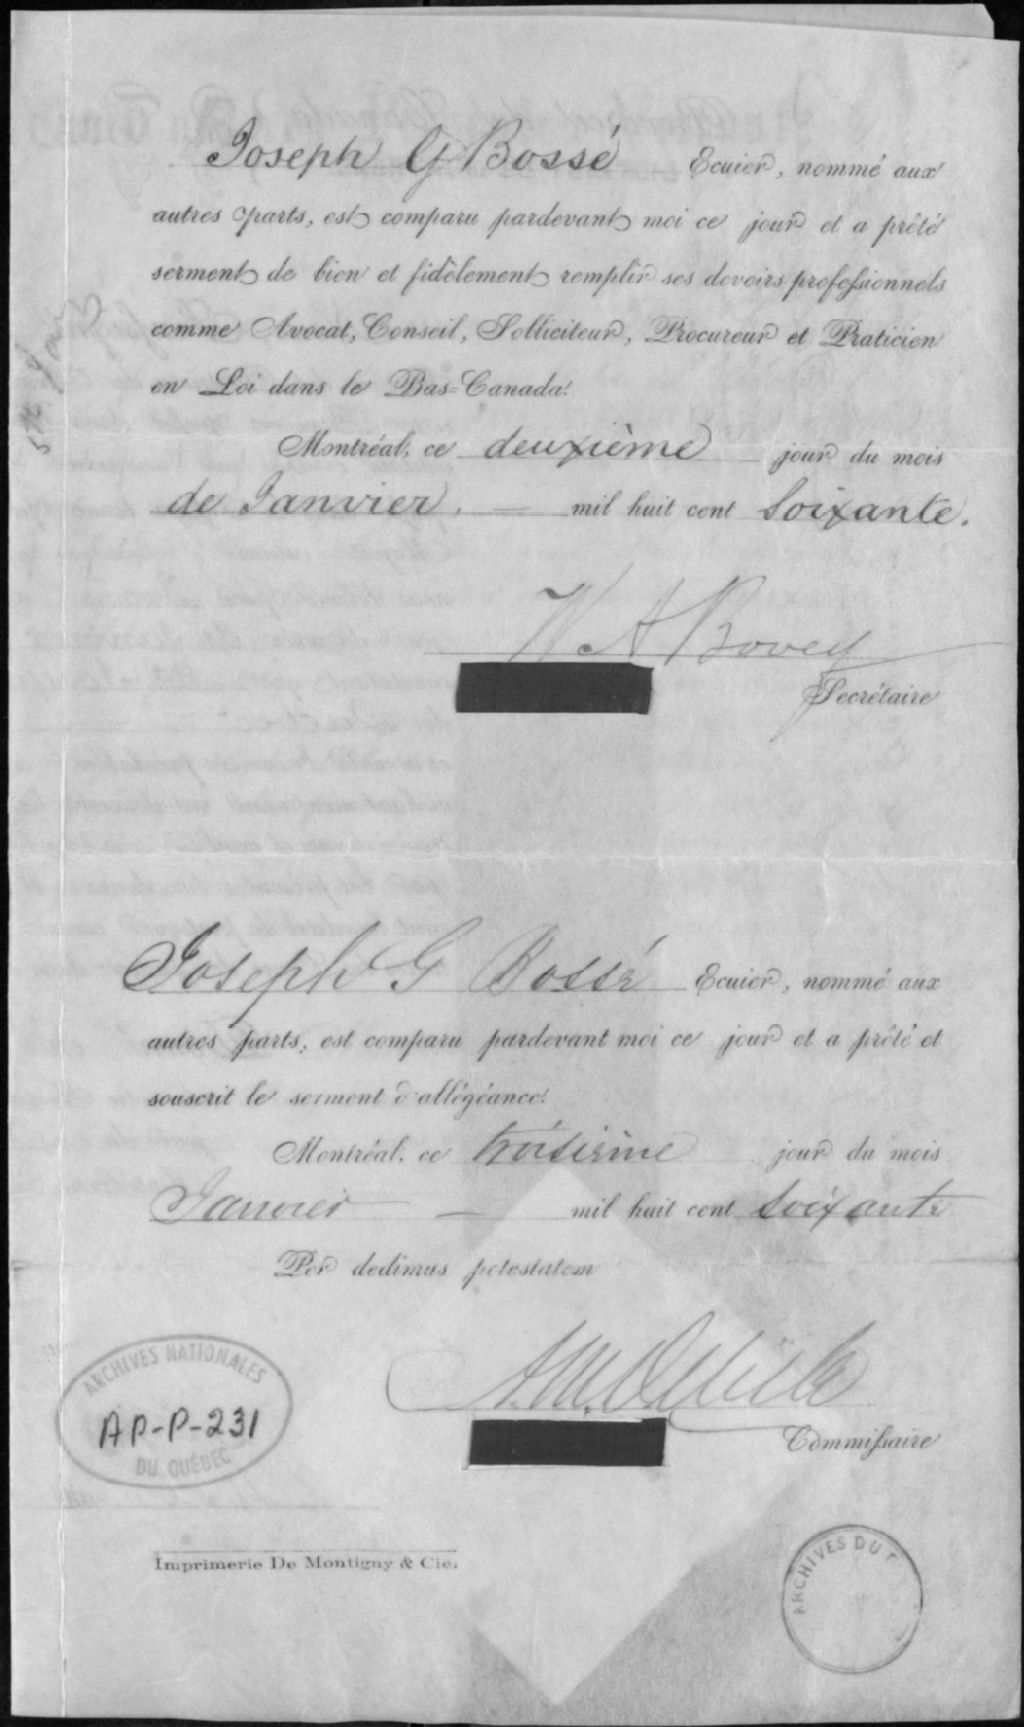 Joseph G Bossé Ecuier, nommé aux
autres parts, est comparu pardevant moi ce jour et a prêté
serment de bien et fidèlement remplir ses devoirs professionnels
comme Avocat, Conseil, Solliciteur, Procureur et Praticien
en Loi dans le Bas=Canada.
Montréal, ce deuxième jour du mois
de Janvier. — mil huit cent Soixante.
W A Bovey
Secrétaire
Joseph G Bossé Ecuier, nommé aux
autres parts, est comparu pardevant moi ce jour et a prêté et
souscrit le serment d'allégéance.
Montréal, ce troisième jour du mois
Janvier — mil huit cent Soixante
Per dedimus potestatem
Commissaire
ARCHIVES NATIONALES
AP-P-231
DU QUÉBEC
Imprimerie De Montigny & Cie.
ARCHIVES DU